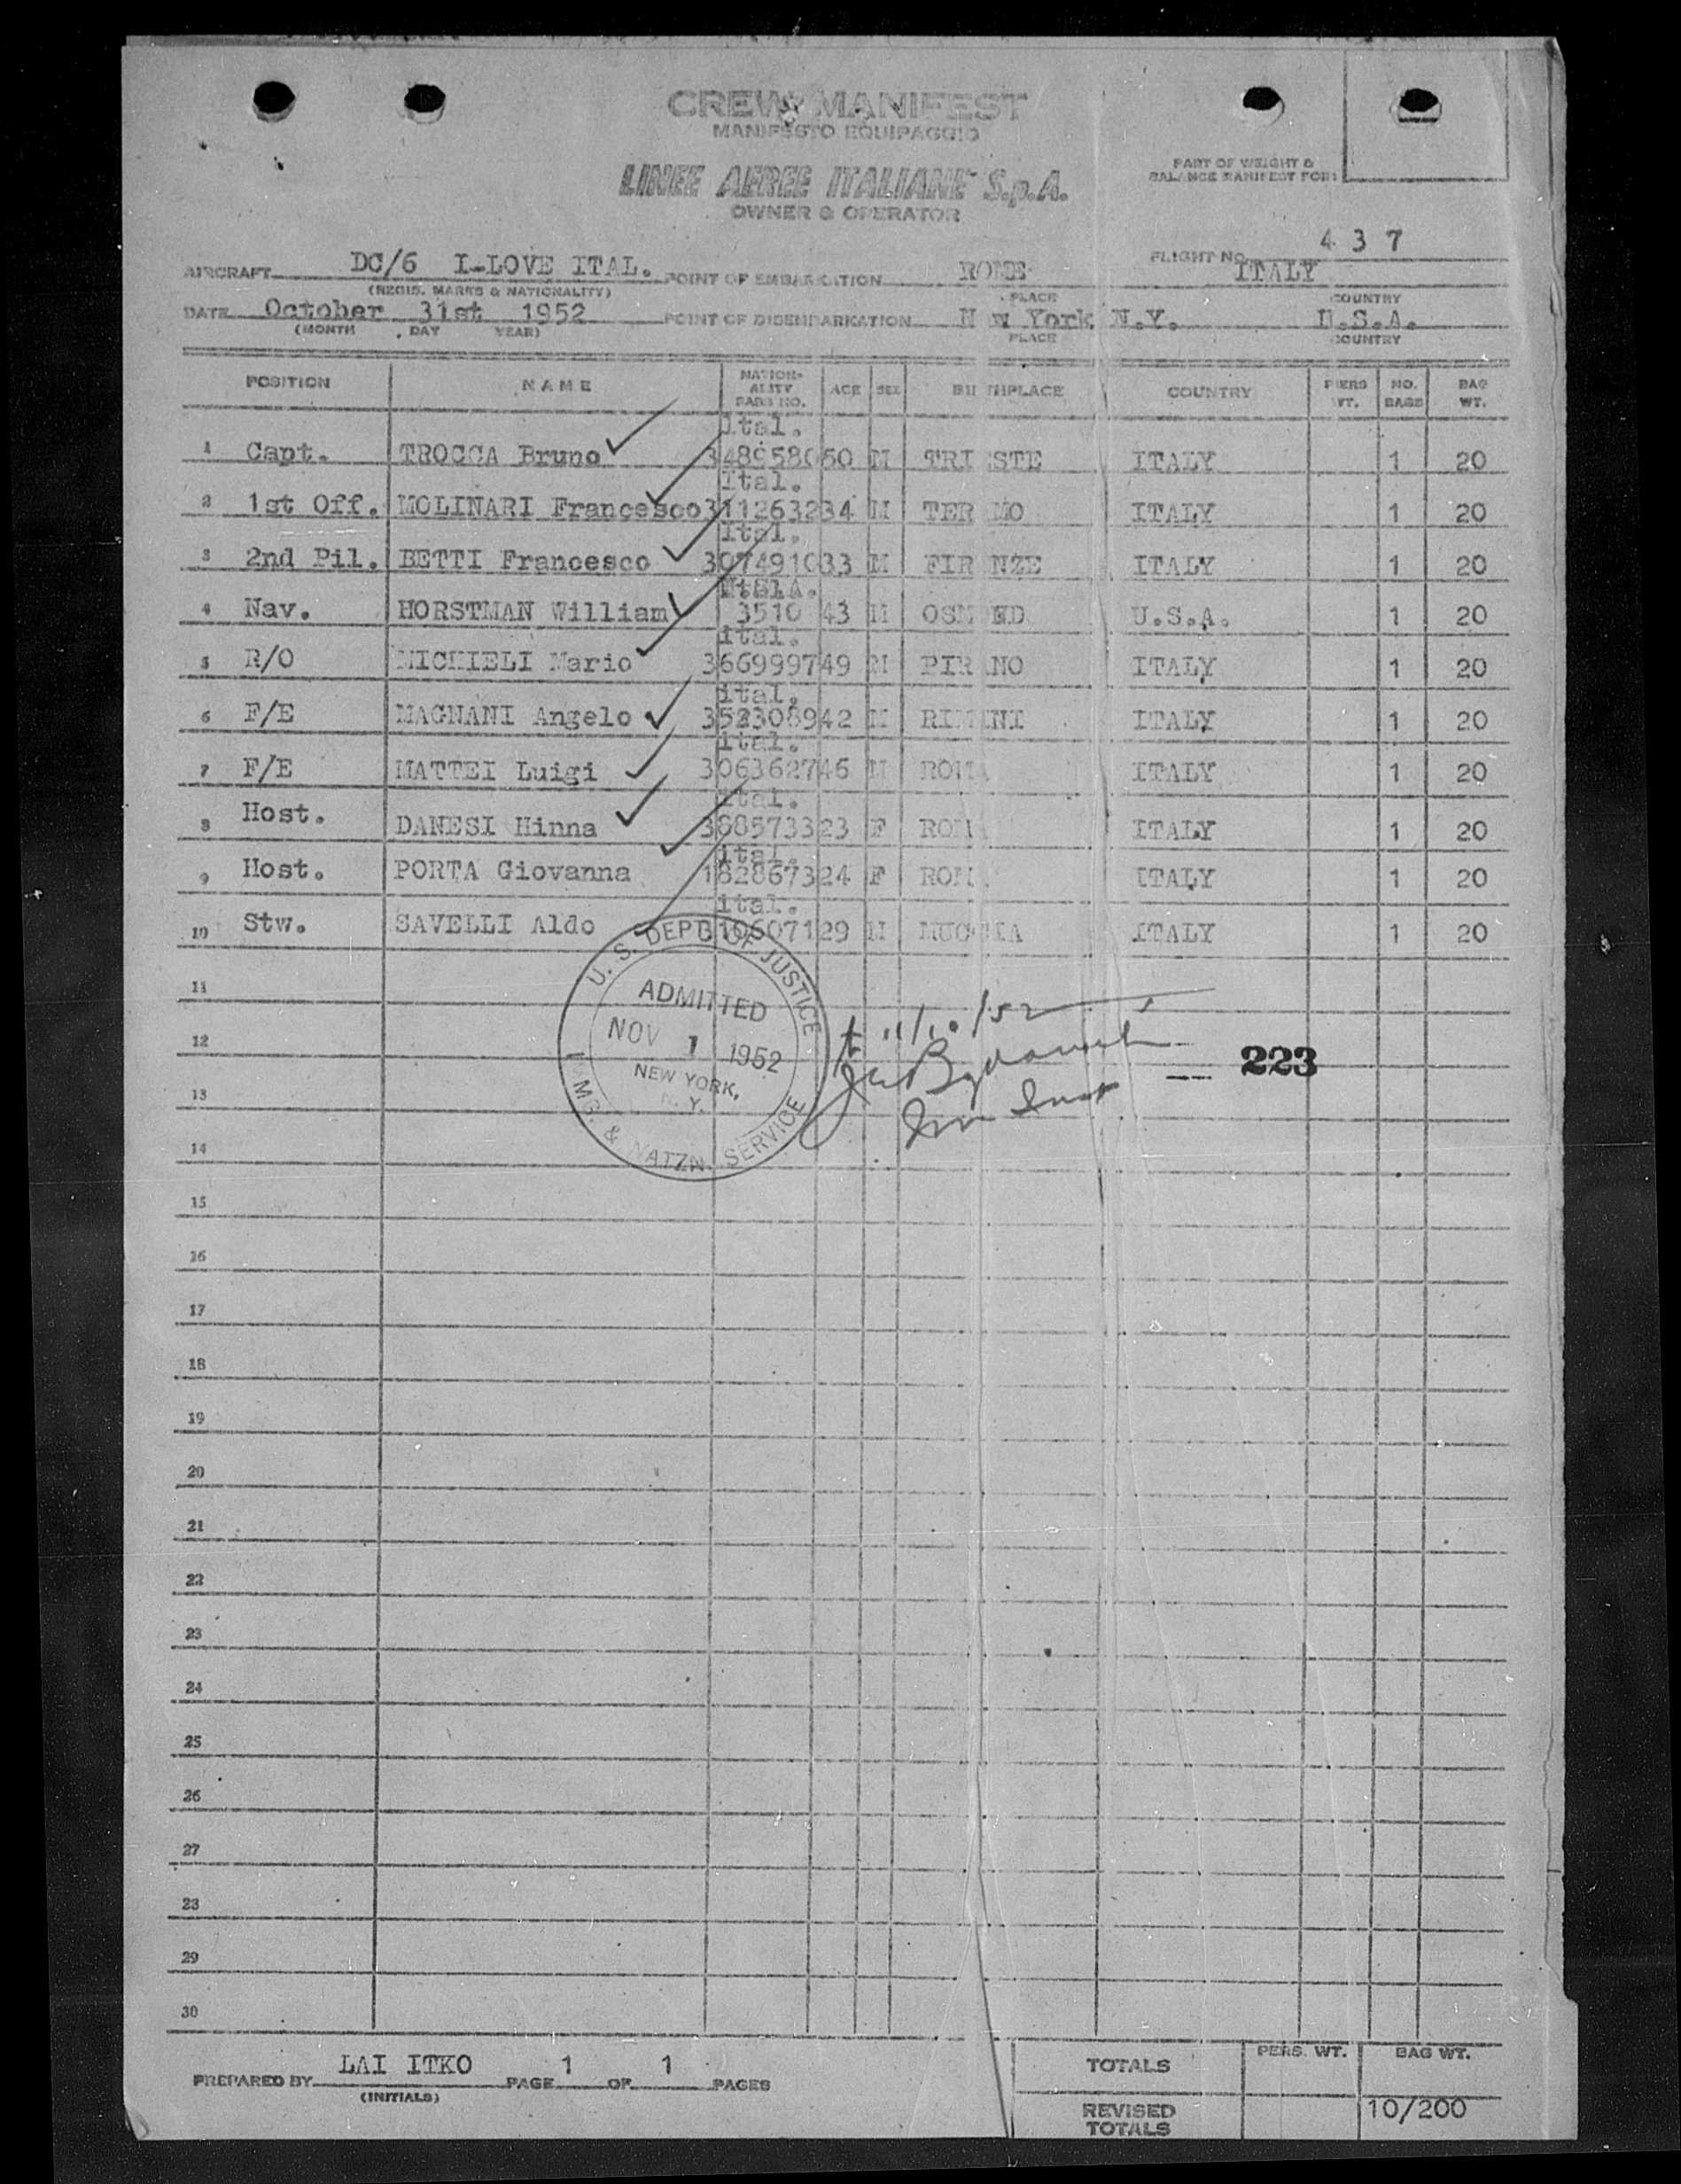 CREW MANIFEST
MANIFESTO EQUIPAGGIO
LINEE AEREE ITALIANE S.p.A.
OWNER & OPERATOR
PART OF WEIGHT &
BALANCE MANIFEST FOR:
AIRCRAFT DC/6 I-LOVE ITAL. POINT OF EMBARKATION ROME ITALY FLIGHT NO. 437
(REGIS. MARKS & NATIONALITY) PLACE COUNTRY
DATE October 31st 1952 POINT OF DISEMBARKATION N w York N.Y. U.S.A.
(MONTH DAY YEAR) PLACE COUNTRY
POSITION NAME NATION-ALITY PASS NO. AGE SEX BI THPLACE COUNTRY PERS WT. NO. BAGS BAG WT.
Ital.
1 Capt. TROCCA Bruno 50 M TRI STE ITALY 1 20
Ital.
2 1st Off. MOLINARI Francesco 3112632 34 M TER MO ITALY 1 20
Ital.
3 2nd Pil. BETTI Francesco 3074910 33 M FIR NZE ITALY 1 20
4 Nav. HORSTMAN William 3510 43 M OSM ND U.S.A. 1 20
Ital.
5 R/O MICHIELI Mario 3669997 49 M PIR NO ITALY 1 20
Ital.
6 F/E MAGNANI Angelo 3523089 42 M RIM NI ITALY 1 20
Ital.
7 F/E MATTEI Luigi 3063627 46 M ROMA ITALY 1 20
Ital.
8 Host. DANESI Hinna 3685733 23 F ROM ITALY 1 20
Ital.
9 Host. PORTA Giovanna 1828673 24 F ROM ITALY 1 20
Ital.
10 Stw. SAVELLI Aldo 29 M MUC IA ITALY 1 20
U. S. DEPT. OF JUSTICE
ADMITTED
NOV 1 1952
NEW YORK,
N. Y.
IMG. & NATZN. SERVICE
11/10/52
223
11
12
13
14
15
16
17
18
19
20
21
22
23
24
25
26
27
28
29
30
PREPARED BY LAI ITKO PAGE 1 OF 1 PAGES
(INITIALS)
TOTALS PERS. WT. BAG WT.
REVISED TOTALS 10/200